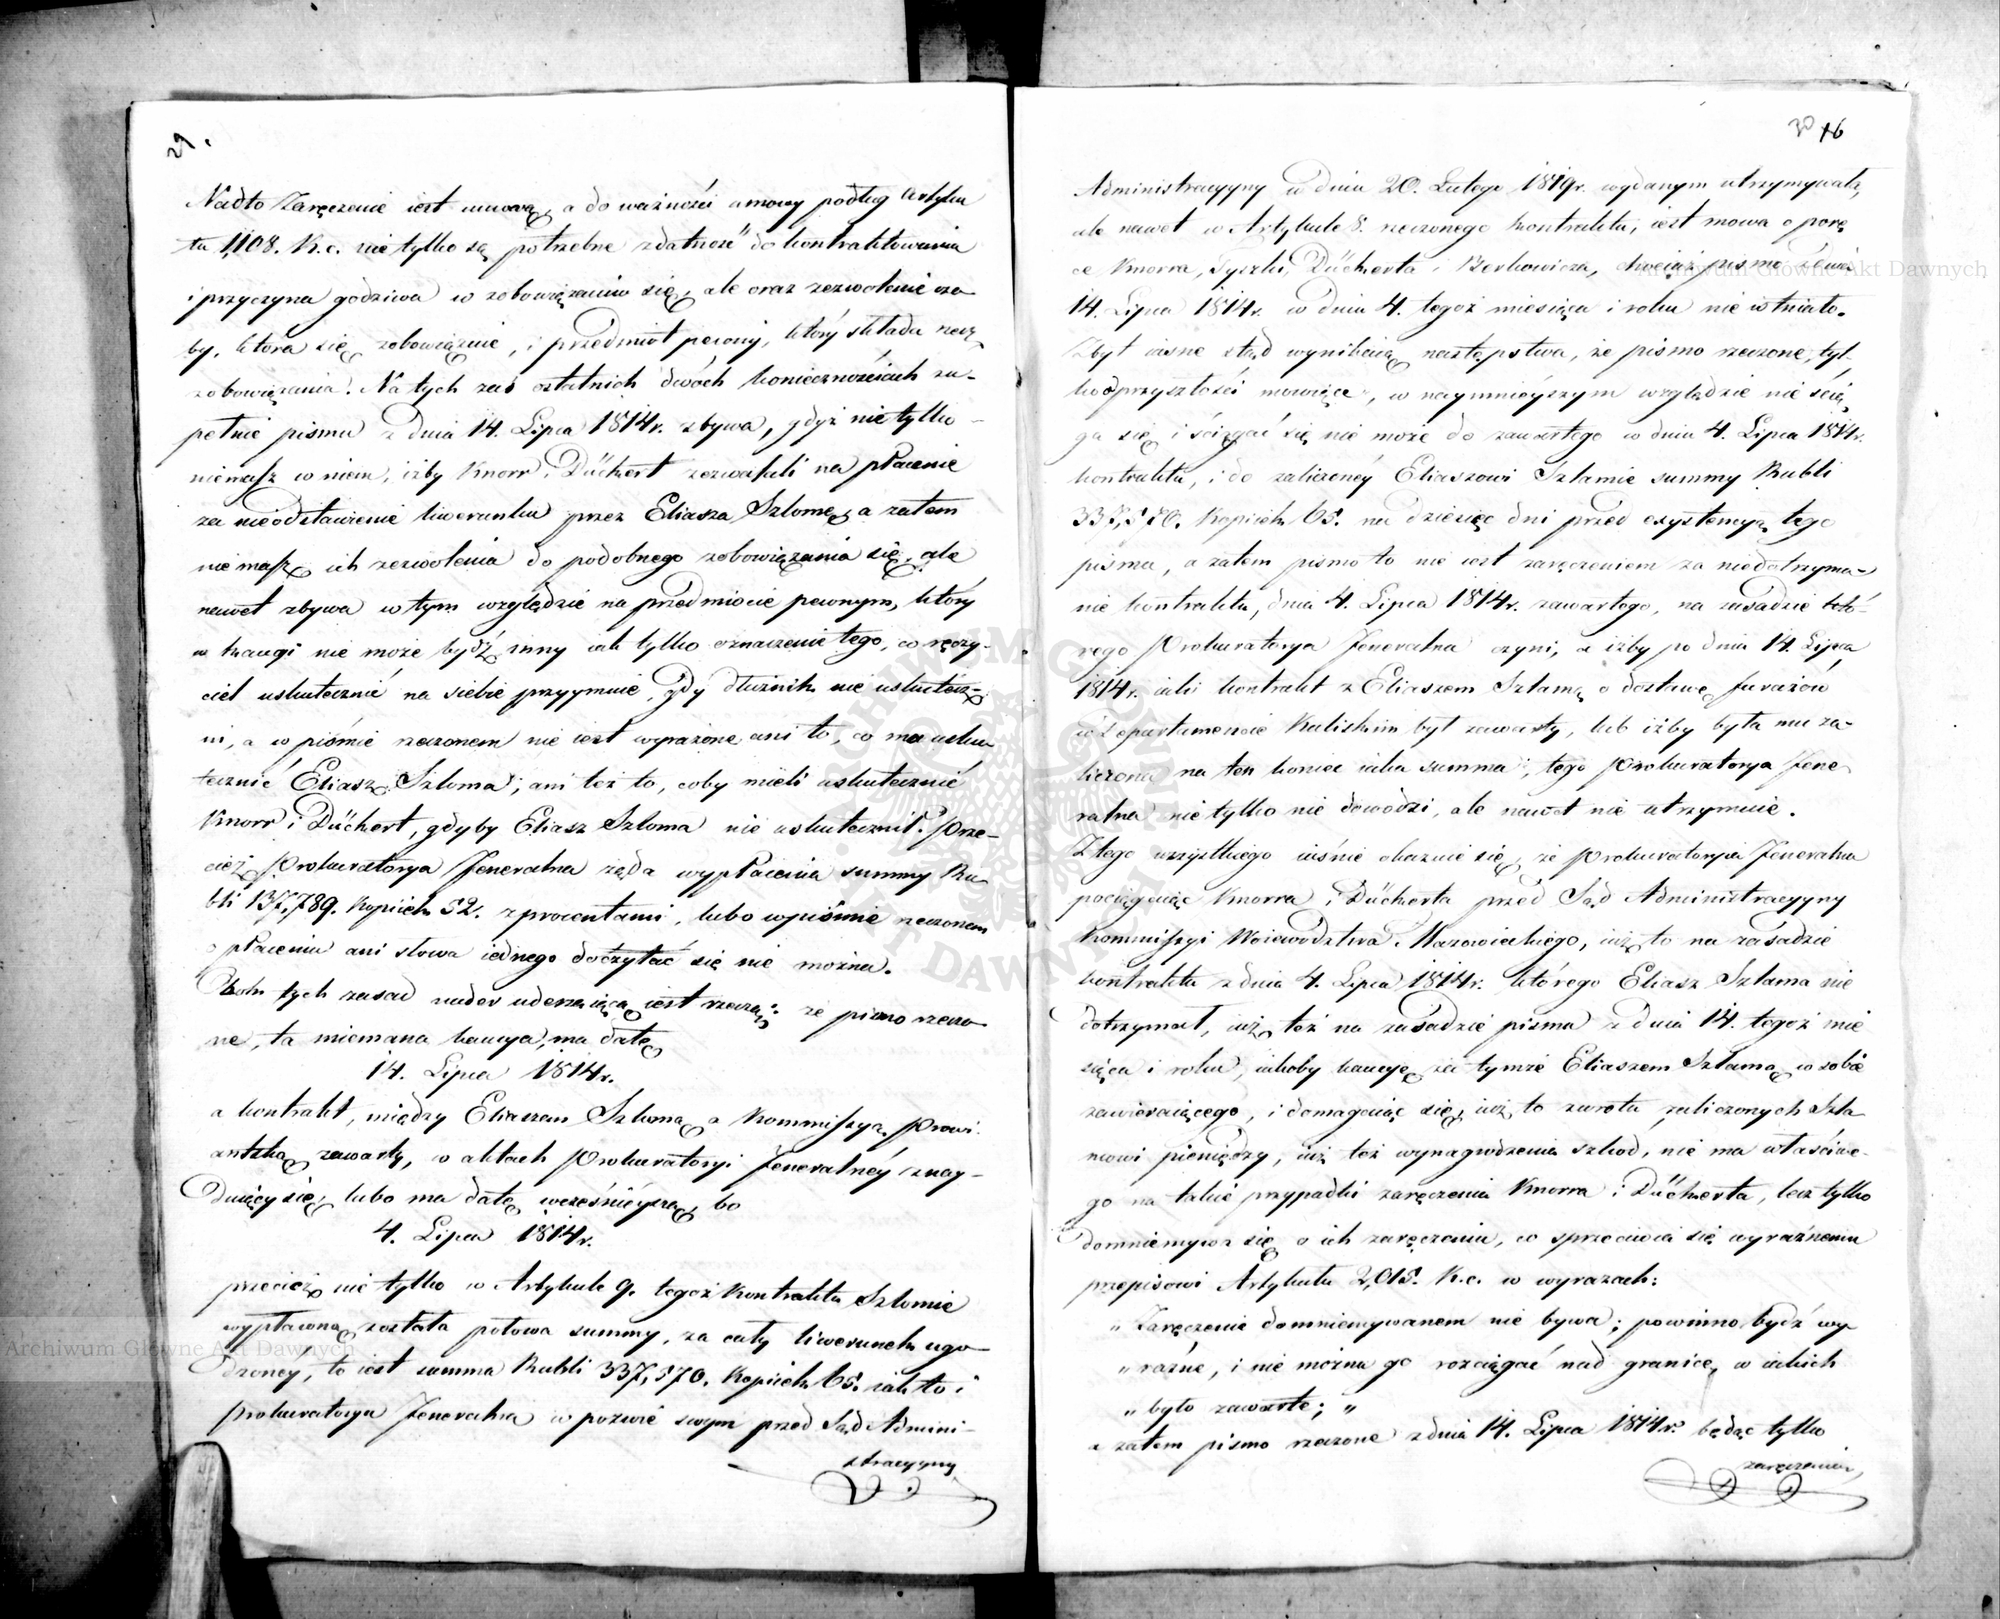 29.
Nadto Zaręczenie iest umową, a do ważności umowy podług Artyku
łu 1,108. K.c. nie tylko są potrzebne zdatność do kontraktowania
i przyczyna godziwa w zobowiązaniu się, ale oraz zezwolenie oso
by, która się zobowiązuie, i przedmiot pewny, który składa rzecz
zobowiązania. Na tych zaś ostatnich dwóch koniecznościach zu-
pełnie pismu z dnia 14. Lipca 1814r. zbywa, gdyż nie tylko
niemasz w niem, iżby Knorr i Dückert zezwalali na płacenie
za nieodstawienie liwerunku przez Eliasza Szlomę, a zatem
niemasz ich zezwolenia do podobnego zobowiązania się, ale
nawet zbywa w tym względzie na przedmiocie pewnym, który
w kaucyi nie może bydź inny iak tylko oznaczenie tego, co ręczy-
ciel uskutecznić na siebie przyymuie, gdy dłużnik nie uskutecz-
ni, a w piśmie rzeczonem nie iest wyrażone ani to, co ma usku
tecznić Eliasz Szloma, ani też to, coby mieli uskutecznić
Knorr i Dückert, gdyby Eliasz Szloma nie uskutecznił. Prze-
cież Prokuratorya Jeneralna żąda wypłacenia summy Ru
bli 137,789. Kopiiek 52. z procentami, lubo w piśmie rzeczonem
o płaceniu ani słowa iednego doczytać się nie można.
Obok tych zasad nader uderzaiącą iest rzeczą: że pismo rzeczo
ne, ta mniemana kaucya, ma datę
14. Lipca 1814r.
a kontrakt, między Eliaszem Szlomą a Kommissyą Prowi-
antską zawarty, w aktach Prokuratoryi Jeneralnéy znay-
duiący się, lubo ma datę wcześnieyszą, bo
4. Lipca 1814r.
przecież nie tylko w Artykule 9. tegoż Kontraktu Szlomie
wypłacona została połowa summy, za cały liwerunek ugo-
dzoney, to iest summa Rubli 337,570. Kopiiek 65. iak to i
Prokuratorya Jeneralna w pozwie swym przed Sąd Admini-
stracyyny
30 16
Administracyyny w dniu 20. Lutego 1819r. wydanym utrzymywała,
ale nawet w Artykule 8. rzeczonego kontraktu, iest mowa o porę
ce Knorra, Syszki, Dückerta i Berkowicza, chociaż pismo z dnia
14. Lipca 1814r. w dniu 4. tegoż miesiąca i roku nie istniało.
Zbyt iasne stąd wynikaią następstwa, że pismo rzeczone, tyl-
ko o przyszłości mówiące, w naymnieyszym względzie nie ścią
ga się i ściągać się nie może do zawartego w dniu 4. Lipca 1814r.
kontraktu, i do zaliczonéy Eliaszowi Szlamie summy Rubli
337,570. Kopiiek 65. na dziesięć dni przed exystencyą tego
pisma, a zatem pismo to nie iest zaręczeniem za niedotrzyma-
nie kontraktu, dnia 4. Lipca 1814r. zawartego, na zasadzie któ-
rego Prokuratorya Jeneralna czyni, a iżby po dniu 14. Lipca
1814r. iaki kontrakt z Eliaszem Szlamą o dostawę furażów
w Departamencie Kaliskim był zawarty, lub iżby była mu za-
liczona na ten koniec iaka summa, tego Prokuratorya Jene
ralna nie tylko nie dowodzi, ale nawet nie utrzymuie.
Z tego wszystkiego iaśnie okazuie się, że Prokuratorya Jeneralna
pociągaiąc Knorra i Dückerta przed Sąd Administracyyny
Kommissyi Woiewództwa Mazowieckiego, iuż to na zasadzie
kontraktu z dnia 4. Lipca 1814r. którego Eliasz Szlama nie
dotrzymał, iuż też na zasadzie pisma z dnia 14. tegoż mie
siąca i roku, iakoby kaucyę za tymże Eliaszem Szlamą w sobie
zawieraiącego, i domagaiąc się, iuż to zwrotu zaliczonych Szla
mowi pieniędzy, iuż też wynagrodzenia szkod, nie ma właściwe-
go na takie przypadki zaręczenia Knorra i Dückerta, lecz tylko
domniemywa się o ich zaręczeniu, co sprzeciwia się wyraźnemu
przepisowi Artykułu 2,015. K.c. w wyrazach:
„ Zaręczenie domniemywanem nie bywa; powinno bydź wy
„ raźne, i nie można go rozciągać nad granice, w iakich
„ było zawarte; „
a zatem pismo rzeczone z dnia 14. Lipca 1814r. będąc tylko
zaręczeniem,
Archiwum Główne Akt Dawnych
Archiwum Główne Akt Dawnych